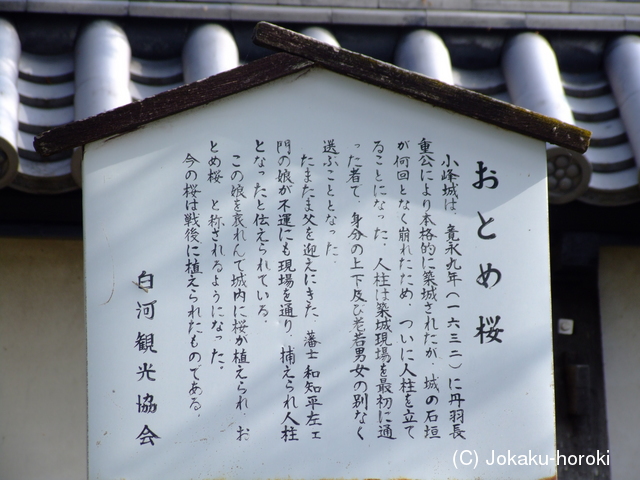 おとめ桜
小峰城は、寛永九年(一六三二)に丹羽長
重公により本格的に築城されたが、城の石垣
が何回となく崩れたため、ついに人柱を立て
ることになった。人柱は築城現場を最初に通
った者で、身分の上下及び老若男女の別なく
選ぶこととなった。
たまたま父を迎えにきた、藩士和知平左エ
門の娘が不運にも現場を通り、捕えられ人柱
となったと伝えられている。
この娘を哀れんで城内に桜が植えられ、お
とめ桜 と称されるようになった。
今の桜は戦後に植えられたものである。
白河観光協会
(C) Jokaku-horoki